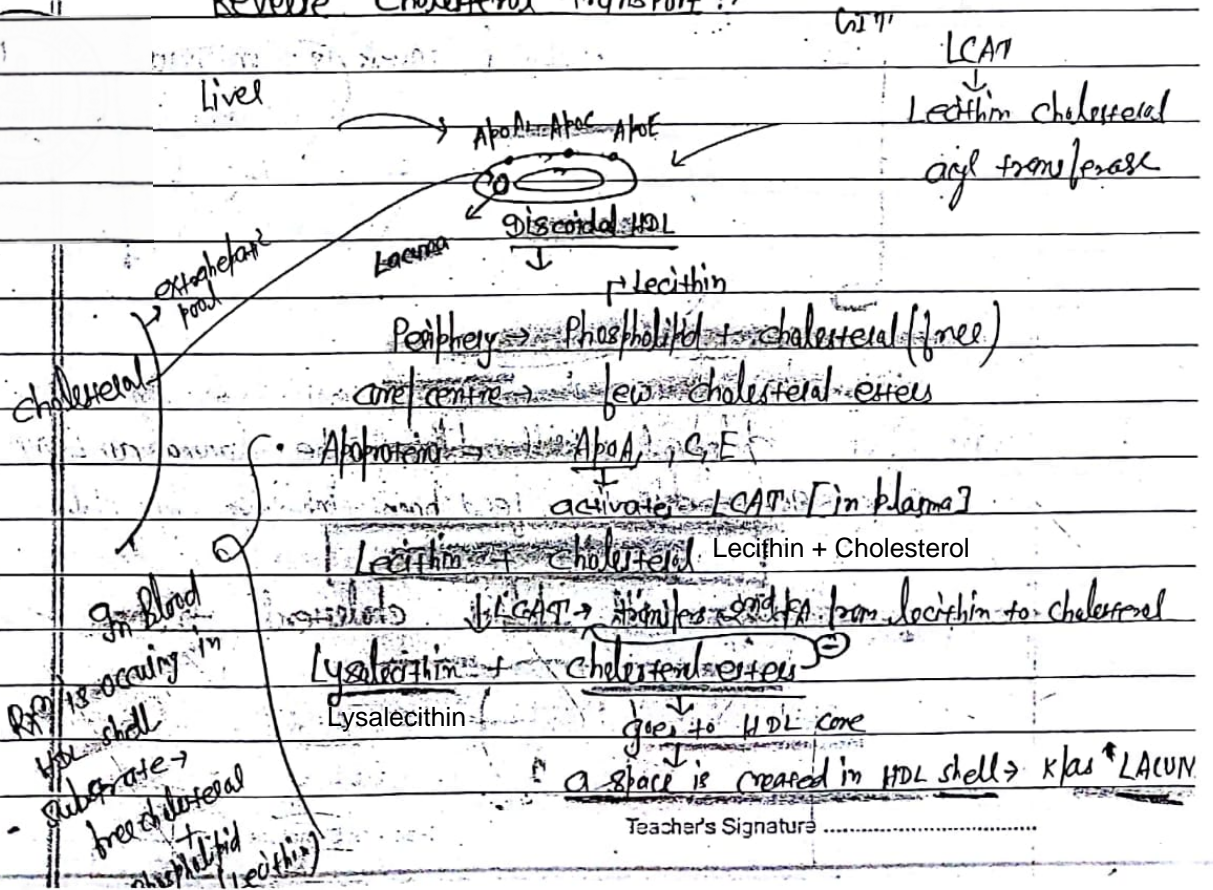 Reverse Cholesterol Transport:
GIT
LCAT
↓
Lecithin cholesterol
acyl transferase
Liver
ApoA1 ApoC ApoE
Discoidal HDL
Lacuna
extrahepatic
pool
Cholesterol
Lecithin
Periphery → Phospholipid + cholesterol (free)
core/centre → few cholesterol esters
• Apoprotein → ApoA1, C, E
↓
activate LCAT [in plasma]
Lecithin + Cholesterol Lecithin + Cholesterol
↓ LCAT → transfers 2nd FA from lecithin to cholesterol
Lysolecithin + cholesterol esters ⊖
Lysalecithin
↓
goes to HDL core
↓
a space is created in HDL shell → k/as LACUN
In Blood
Rxn is occuring in
HDL shell
Substrate →
free cholesterol
+
phospholipid
(Lecithin)
Teacher's Signature